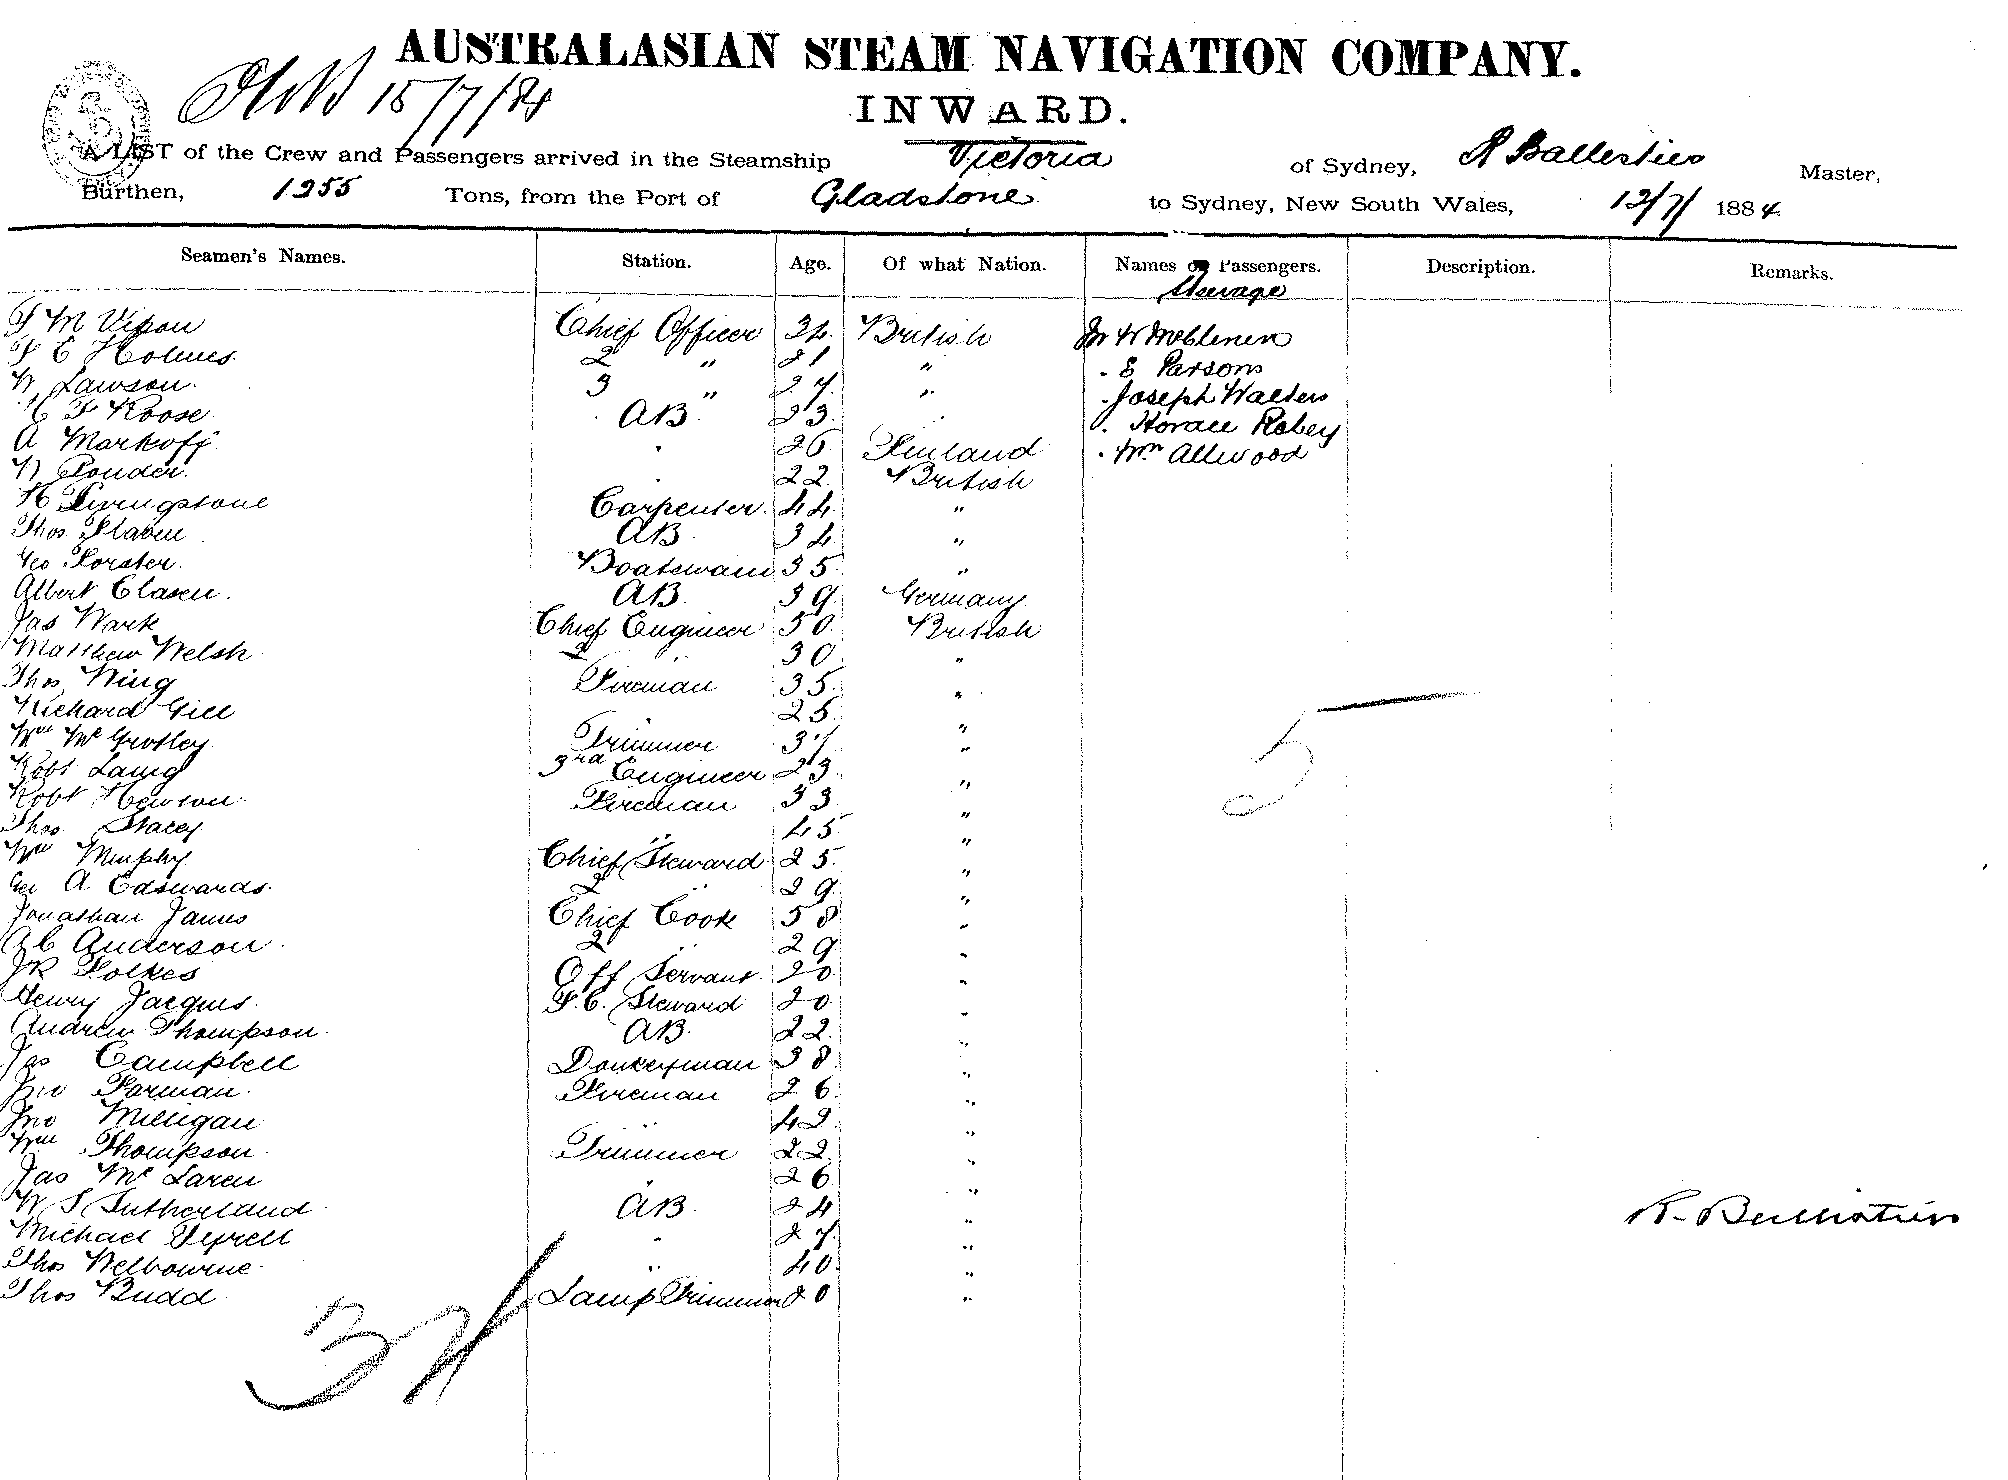 AUSTRALASIAN STEAM NAVIGATION COMPANY.
15/7/84
INWARD.
A LIST of the Crew and Passengers arrived in the Steamship Victoria of Sydney, Master,
Burthen, 1255 Tons, from the Port of Gladstone to Sydney, New South Wales, 12/7/ 1884
Seamen's Names. Station. Age. Of what Nation. Names of Passengers. Description. Remarks.
Steerage
Chief Officer 34 British
T E Holmes 2 " 21 " . E Parsons
W Lawson. 3 " 27 " . Joseph Walters
F Koose AB 23 . Horace Robey
A Markoff " 26 Finland . Wm Allwood
W Souder. " 22 British
H Livingstone Carpenter. 44 "
Thos. Slaven AB. 34 "
Geo Forster. Boatswain 35 "
Albert Clasen. AB 39 Germany
Jas Wark Chief Engineer 50 British
Matthew Welsh 2 30 "
Thos Wing Fireman 35 "
Richard Gill 25 "
Wm Mc Trimmer 31 "
Robt Laing 3rd Engineer 23 "
Robt Hewson Fireman 33 "
Thos Stacey " 45 "
Wm Murphy Chief Steward 25 "
Geo A Edswards. 2 " 29 "
Jonathan James Chief Cook 58 "
Anderson 2 " 29 "
JR Folkes Off Servant 20 "
Henry Jacques. F.C. Steward 20 "
Andrew Thompson. AB. 22 "
Jas Campbell Donkeyman 38 "
Jno Forman. Fireman 26 "
Jno Milligan " 42 "
Wm Thompson. Trimmer 22 "
Jas Mc Laren " 26 "
W S Sutherland AB. 24 "
Michael Tyrell " 27 "
Thos Welbourne " 40 "
Thos Budd Lamp Trimmer 20 "
5
34